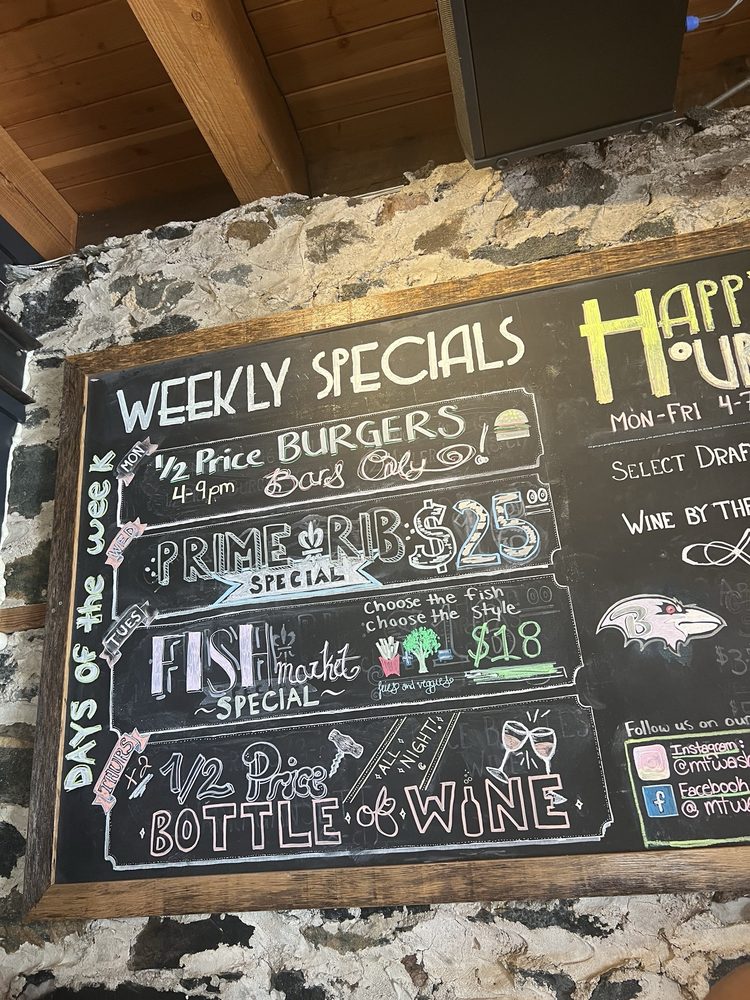 WEEKLY SPECIALS
DAYS of the week
MON
1/2 Price BURGERS
4-9pm Bars Only!
WED
PRIME RIB $25.00
SPECIAL
TUES
FISH market
~SPECIAL~
Choose the fish
choose the style
$18
fries and veggies
THURS
x2
1/2 Price
ALL NIGHT!
BOTTLE of WINE
HAPPY
HOU
MON-FRI 4-7
SELECT DRAF
WINE BY THE
B
$3
Follow us on our
Instagram:
@mtwas
Facebook
@mtwa